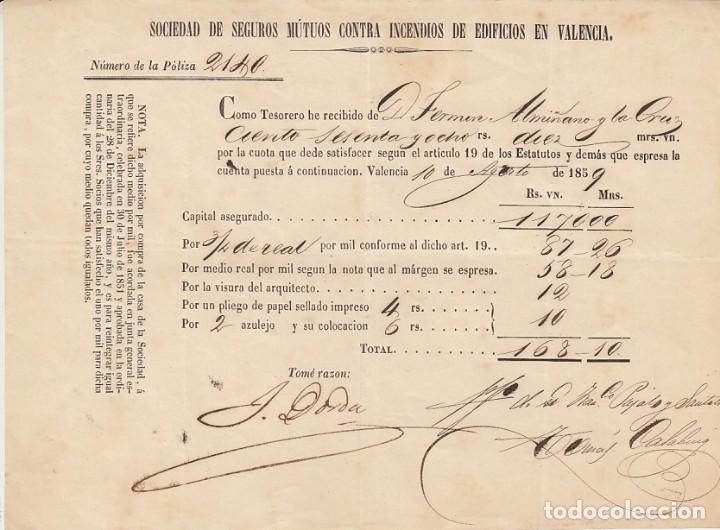 SOCIEDAD DE SEGUROS MÚTUOS CONTRA INCENDIOS DE EDIFICIOS EN VALENCIA.
Número de la Póliza 2140.
NOTA. La adquisicion por compra de la casa de la Sociedad, á
que se refiere dicho medio por mil, fue acordada en junta general es-
traordinaria, celebrada en 30 de Julio de 1851 y aprobada en la ordi-
naria del 28 de Diciembre del mismo año, y es para reintegrar igual
cantidad á los Sres. Socios que han satisfecho el uno por mil para dicha
compra, por cuyo medio quedan todos igualados.
Como Tesorero he recibido de D. Fermin Almiñano y la Cruz
Ciento sesenta y ocho rs. diez mrs. vn.
por la cuota que dede satisfacer segun el articulo 19 de los Estatutos y demás que espresa la
cuenta puesta á continuacion. Valencia 10 Agosto de 1859
Rs. vn. Mrs.
Capital asegurado. 117000
Por 3/4 de real por mil conforme al dicho art. 19.. 87-26
Por medio real por mil segun la nota que al márgen se espresa. 58-18
Por la visura del arquitecto. 12
Por un pliego de papel sellado impreso 4 rs.
Por 2 azulejo y su colocacion 6 rs. 10
TOTAL. 168-10.
Tomé razon:
J. Dorda
de D. Fran.co y
Tomás Calabuig
todocoleccion.net